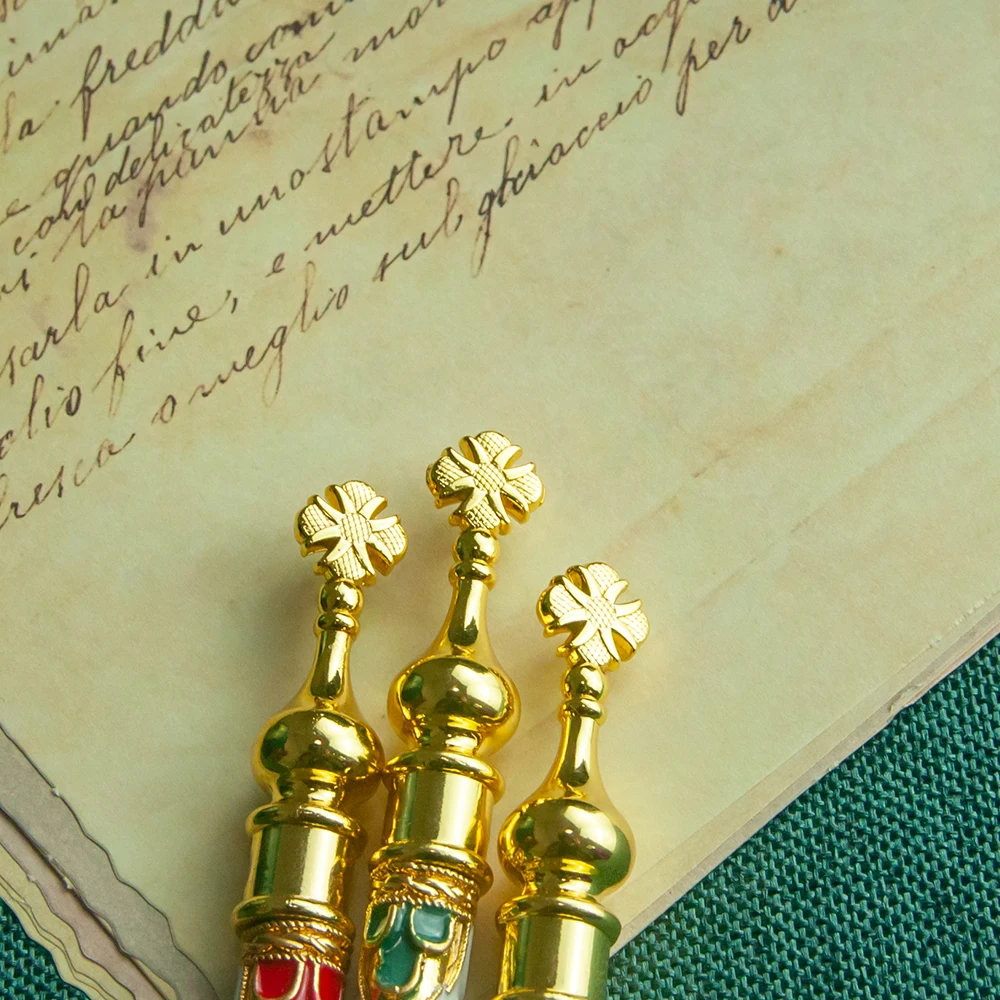 la freddu
e quando com
con delicatezza mor
vi la pancia
sarla in uno stampo app
olio fine, e mettere in acqu
fresca o meglio sul ghiaccio per a